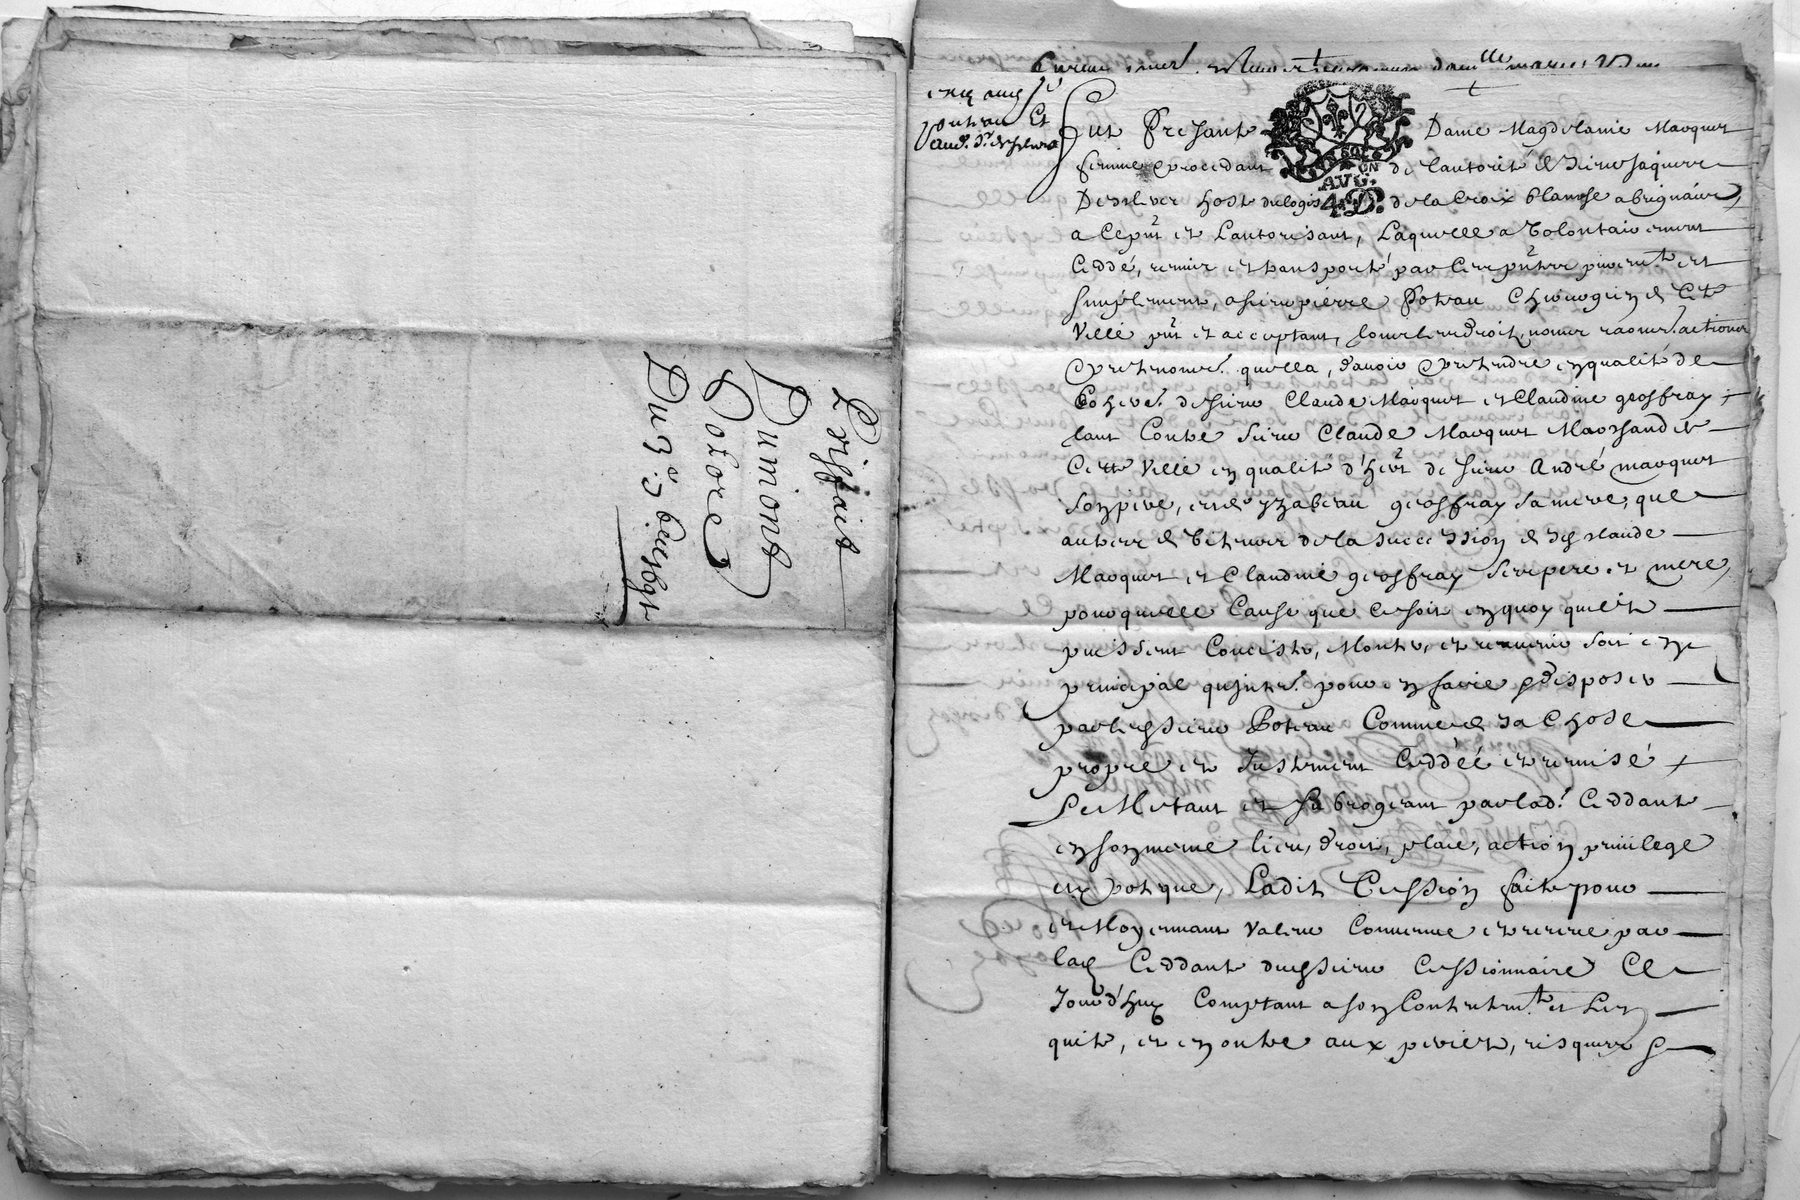 Dumont
Du 3e
Fut Presante Dame Magdelaine Marquet
femme procedant de lautorité de Sieur Jaques
host du logis de la Croix blanche a brignais
AVG.
4.D.
a ce pnt et Lautorisant, Laquelle a Volontairement
Ceddé, remis et transporté par Ces pntes puremt et
simplement, a sieur pierre Poterau Chirurgien de Cete
Ville pnt et acceptant, tous les droits, noms raons actions
et pretnons quella, davoir pretendre en qualité de
Cohere. de sieur Claude Marquet et Claudine geoffray
tant Contre sieur Claude Marquet Marchand de
Cette Ville en qualité d'hert de sieur André marquet
son pere, et de yzabeau geoffray sa mere, que
autres detenteur de la succession de Claude
Marquet et Claudine geoffray ses pere et mere
pour quelle Cause que ce soit en quoy quelet
puissent Concister, Monter, et revenir soit en
principal qu'interets pour en faire disposer
par led sieur Poterau Comme de sa Chose
propre et Justement Ceddée et remisé
Le Metant et subrogeant par lad. Ceddante
en son meme lieu, droit, place, action privilege
et ypoteque, Ladite Cession faite pour
et Moyennant Valeur Convenue et receue par
lad Ceddante dud sieur Cessionnaire Ce
Jourd'huy Comptant a son Contentemt et L'en
quite, et en outre aux perilets, risques